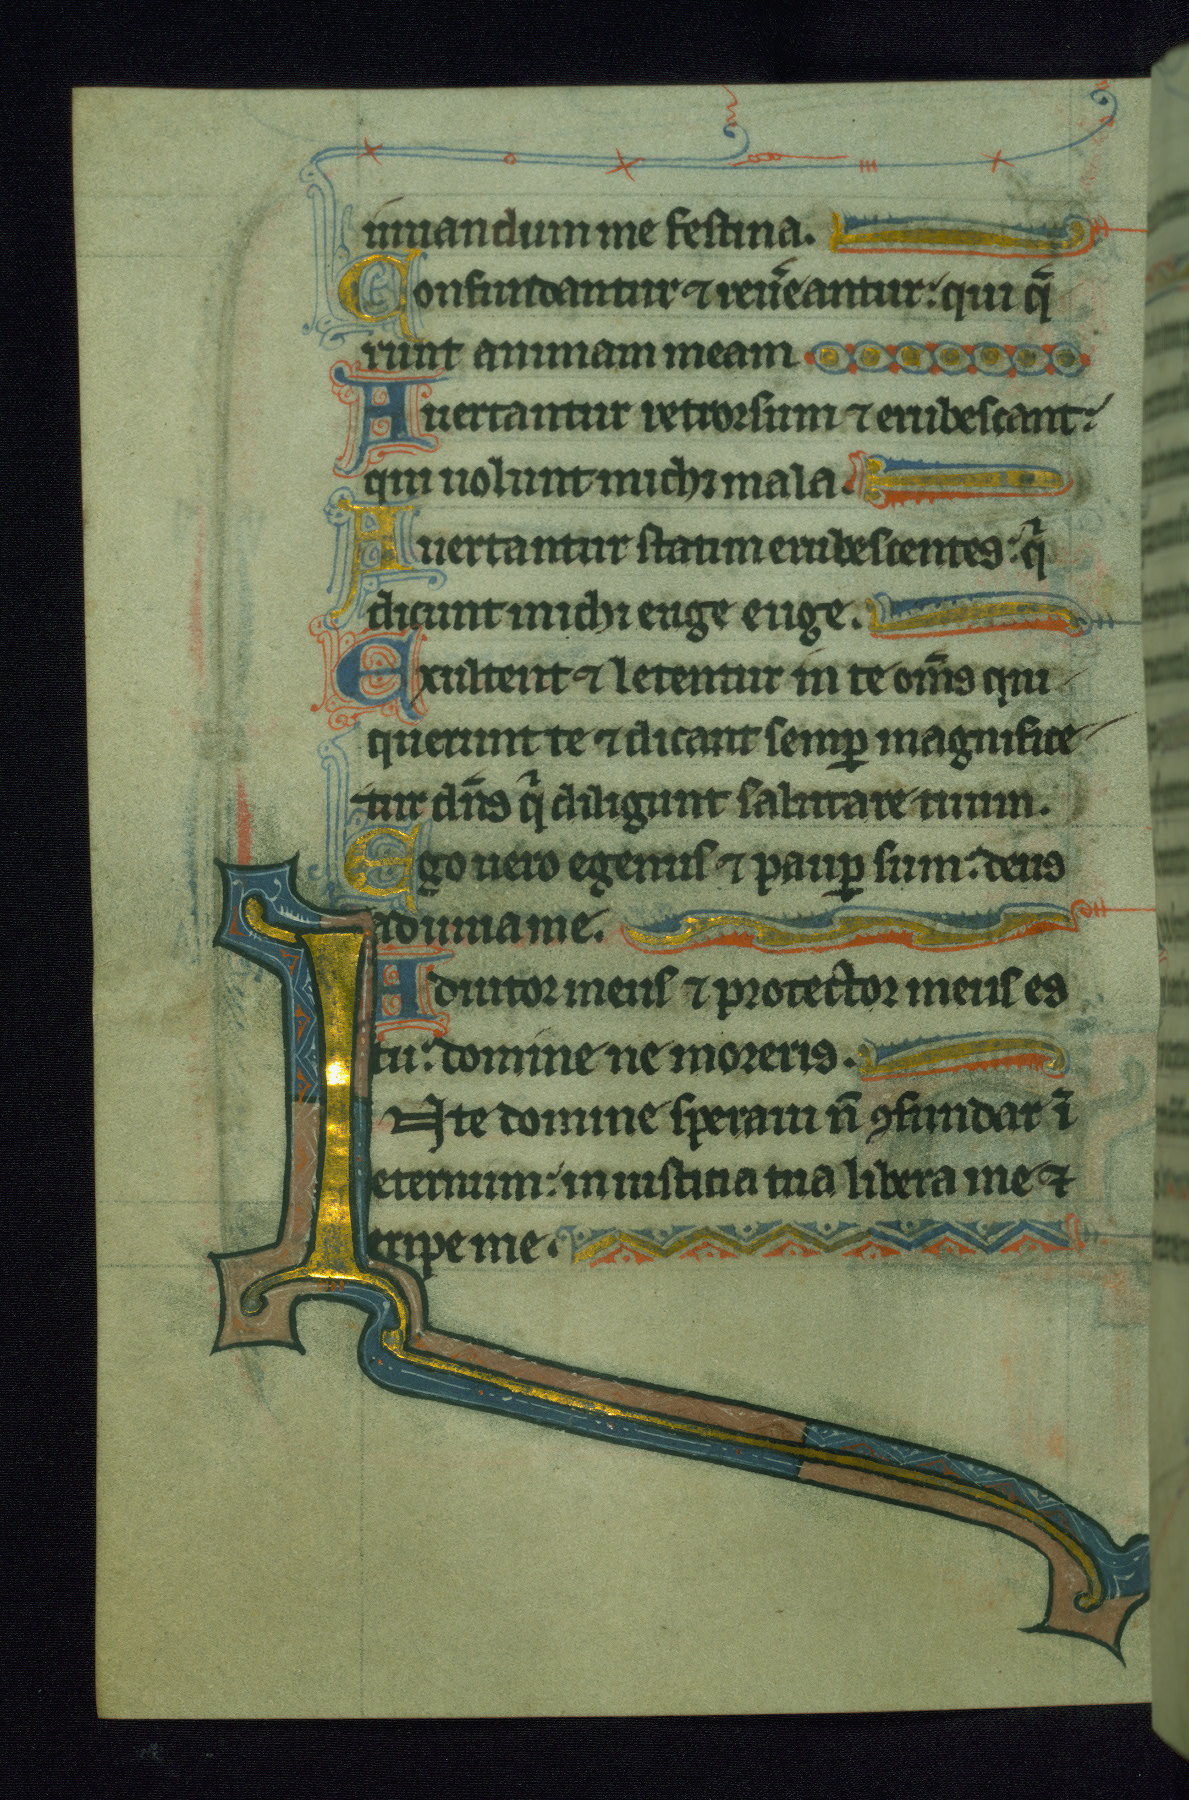 iuuandum me festina.
Confundantur ⁊ reu̅eantur: qui q̅
runt animam meam
Auertantur retrorsum ⁊ erubescant:
qui uolunt michi mala.
Auertantur statim erubescentes: qͥ
dicunt michi euge euge.
Exultent ⁊ letentur in te om̅s qui
querunt te ⁊ dicant semꝑ magnifice
tur dn̅s qͥ diligunt salutare tuum.
Ego uero egenus ⁊ pauꝑ sum: deus
adiuua me.
Adiutor meus ⁊ protector meus es
tu: domine ne moreris.
IN te domine speraui n̅ ꝯfundar i̅
eternum: in iusticia tua libera me ⁊
eripe me.